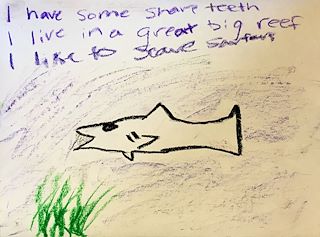 I have some share teeth
I live in a great big reef
I like to scare surfers